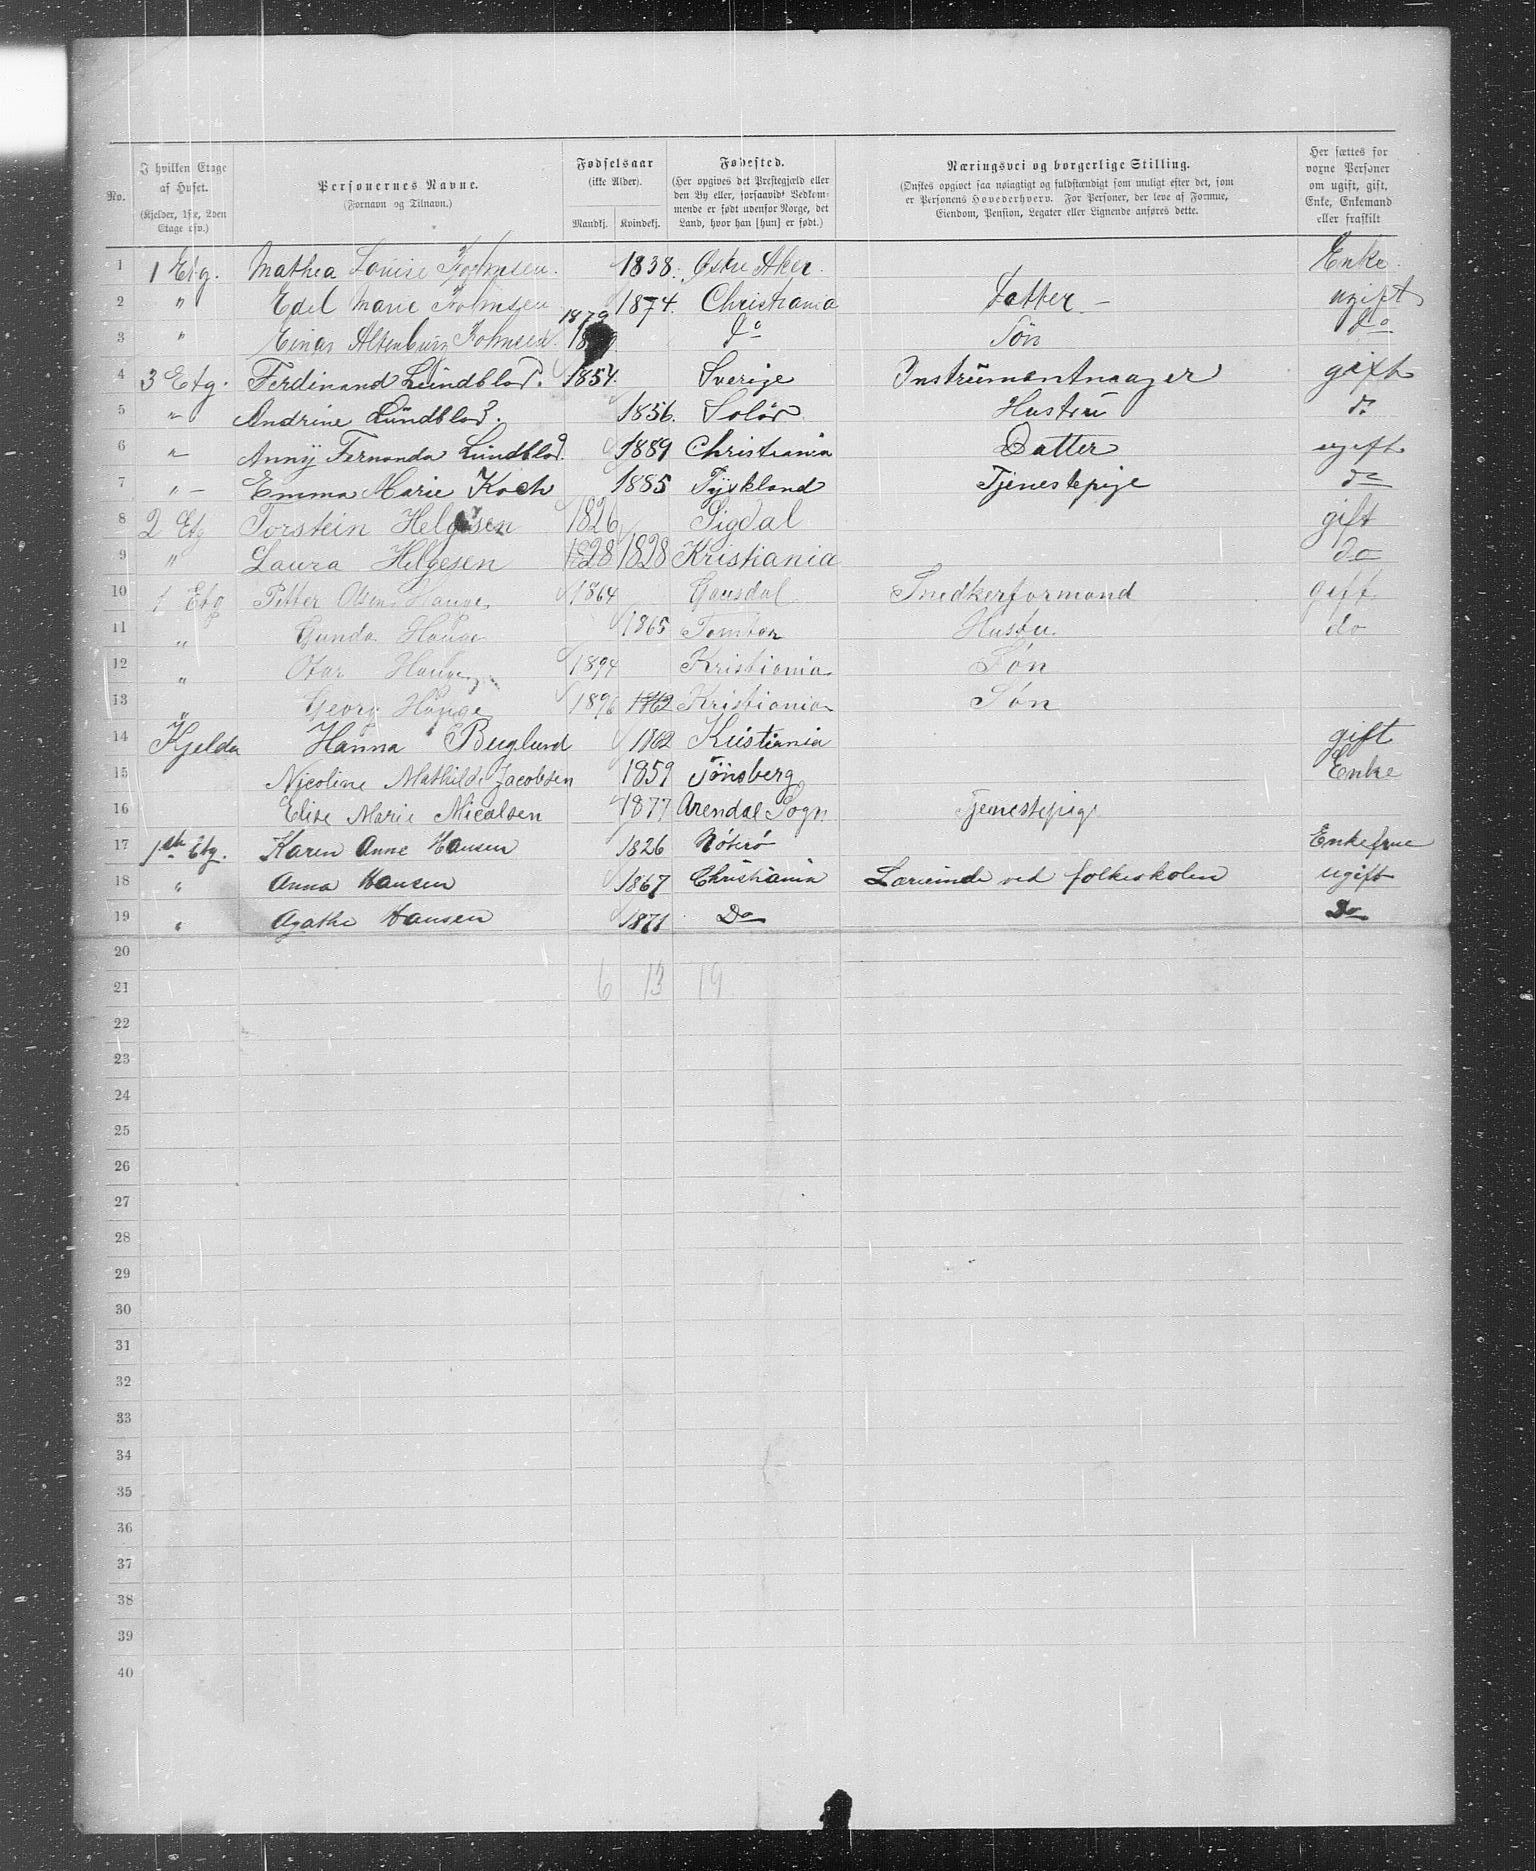 No.
I hvilken Etage af Huset. (Kjelder, 1ste, 2den Etage osv.)
Personernes Navne. (Fornavn og Tilnavn.)
Fødselsaar (ikke Alder). Mandkj. Kvindekj.
Fødested. (Her opgives det Prestegjæld eller den By eller, forsaavidt Vedkommende er født udenfor Norge, det Land, hvor han [hun] er født.)
Næringsvei og borgerlige Stilling. (Ønskes opgivet saa nøiagtigt og fuldstændigt som muligt efter det, som er Personens Hovederhverv. For Personer, der leve af Formue, Eiendom, Pension, Legater eller Lignende anføres dette.)
Her sættes for voxne Personer om ugift, gift, Enke, Enkemand eller fraskilt
1 1 Etg. Mathea Louise 1838. Østre Aker. Enke.
2 " Edel Marie 1874. Christiania Datter – ugift
3 " Einar 1879 do Søn do
4 3 Etg. Ferdinand Lündblad. 1854. Sverige Instrümentmager gift
5 " Andrine Lündblad. 1856. Solör Hustrü do
6 " Anny Fernanda Lündblad. 1889 Christiania Datter ugift
7 " – Emma Marie Koch 1885 Tyskland Tjenestepige do
8 2 Etg Torstein Helgesen 1826 Sigdal gift
9 " Laura Helgesen 1828 1828 Kristiania do
10 1 Etg Petter Olsen Hauge 1864 Gausdal Snedkerformand gift
11 " Gunda Hauge 1865 Hustru do
12 " Hauge 1894 Kristiania Søn
13 " Georg Hauge 1896 1862 Kristiania Søn
14 Kjelder Hanna Berglund 1862 Kristiania gift
15 Nicoline Mathilde Jacobsen 1859 Tönsberg Enke
16 Elise Marie Micalsen 1877 Arendal Sogn Tjenestepige
17 1ste Etg. Karen Anne Hansen 1826 Nöterö Enkefrue
18 " Anna Hansen 1867 Christiania Lærerinde ved folkeskolen ugift
19 " Agathe Hansen 1871 Do Do
20
6 13 19
21
22
23
24
25
26
27
28
29
30
31
32
33
34
35
36
37
38
39
40